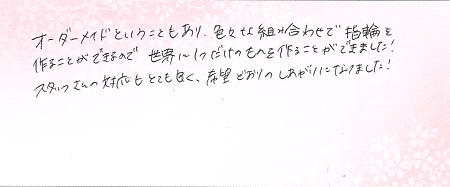 オーダーメイドということもあり、色々な組み合わせで指輪を
作ることができるので世界に1つだけのものを作ることができました!
スタッフさんの対応もとても良く、希望どおりのしあがりになりました!